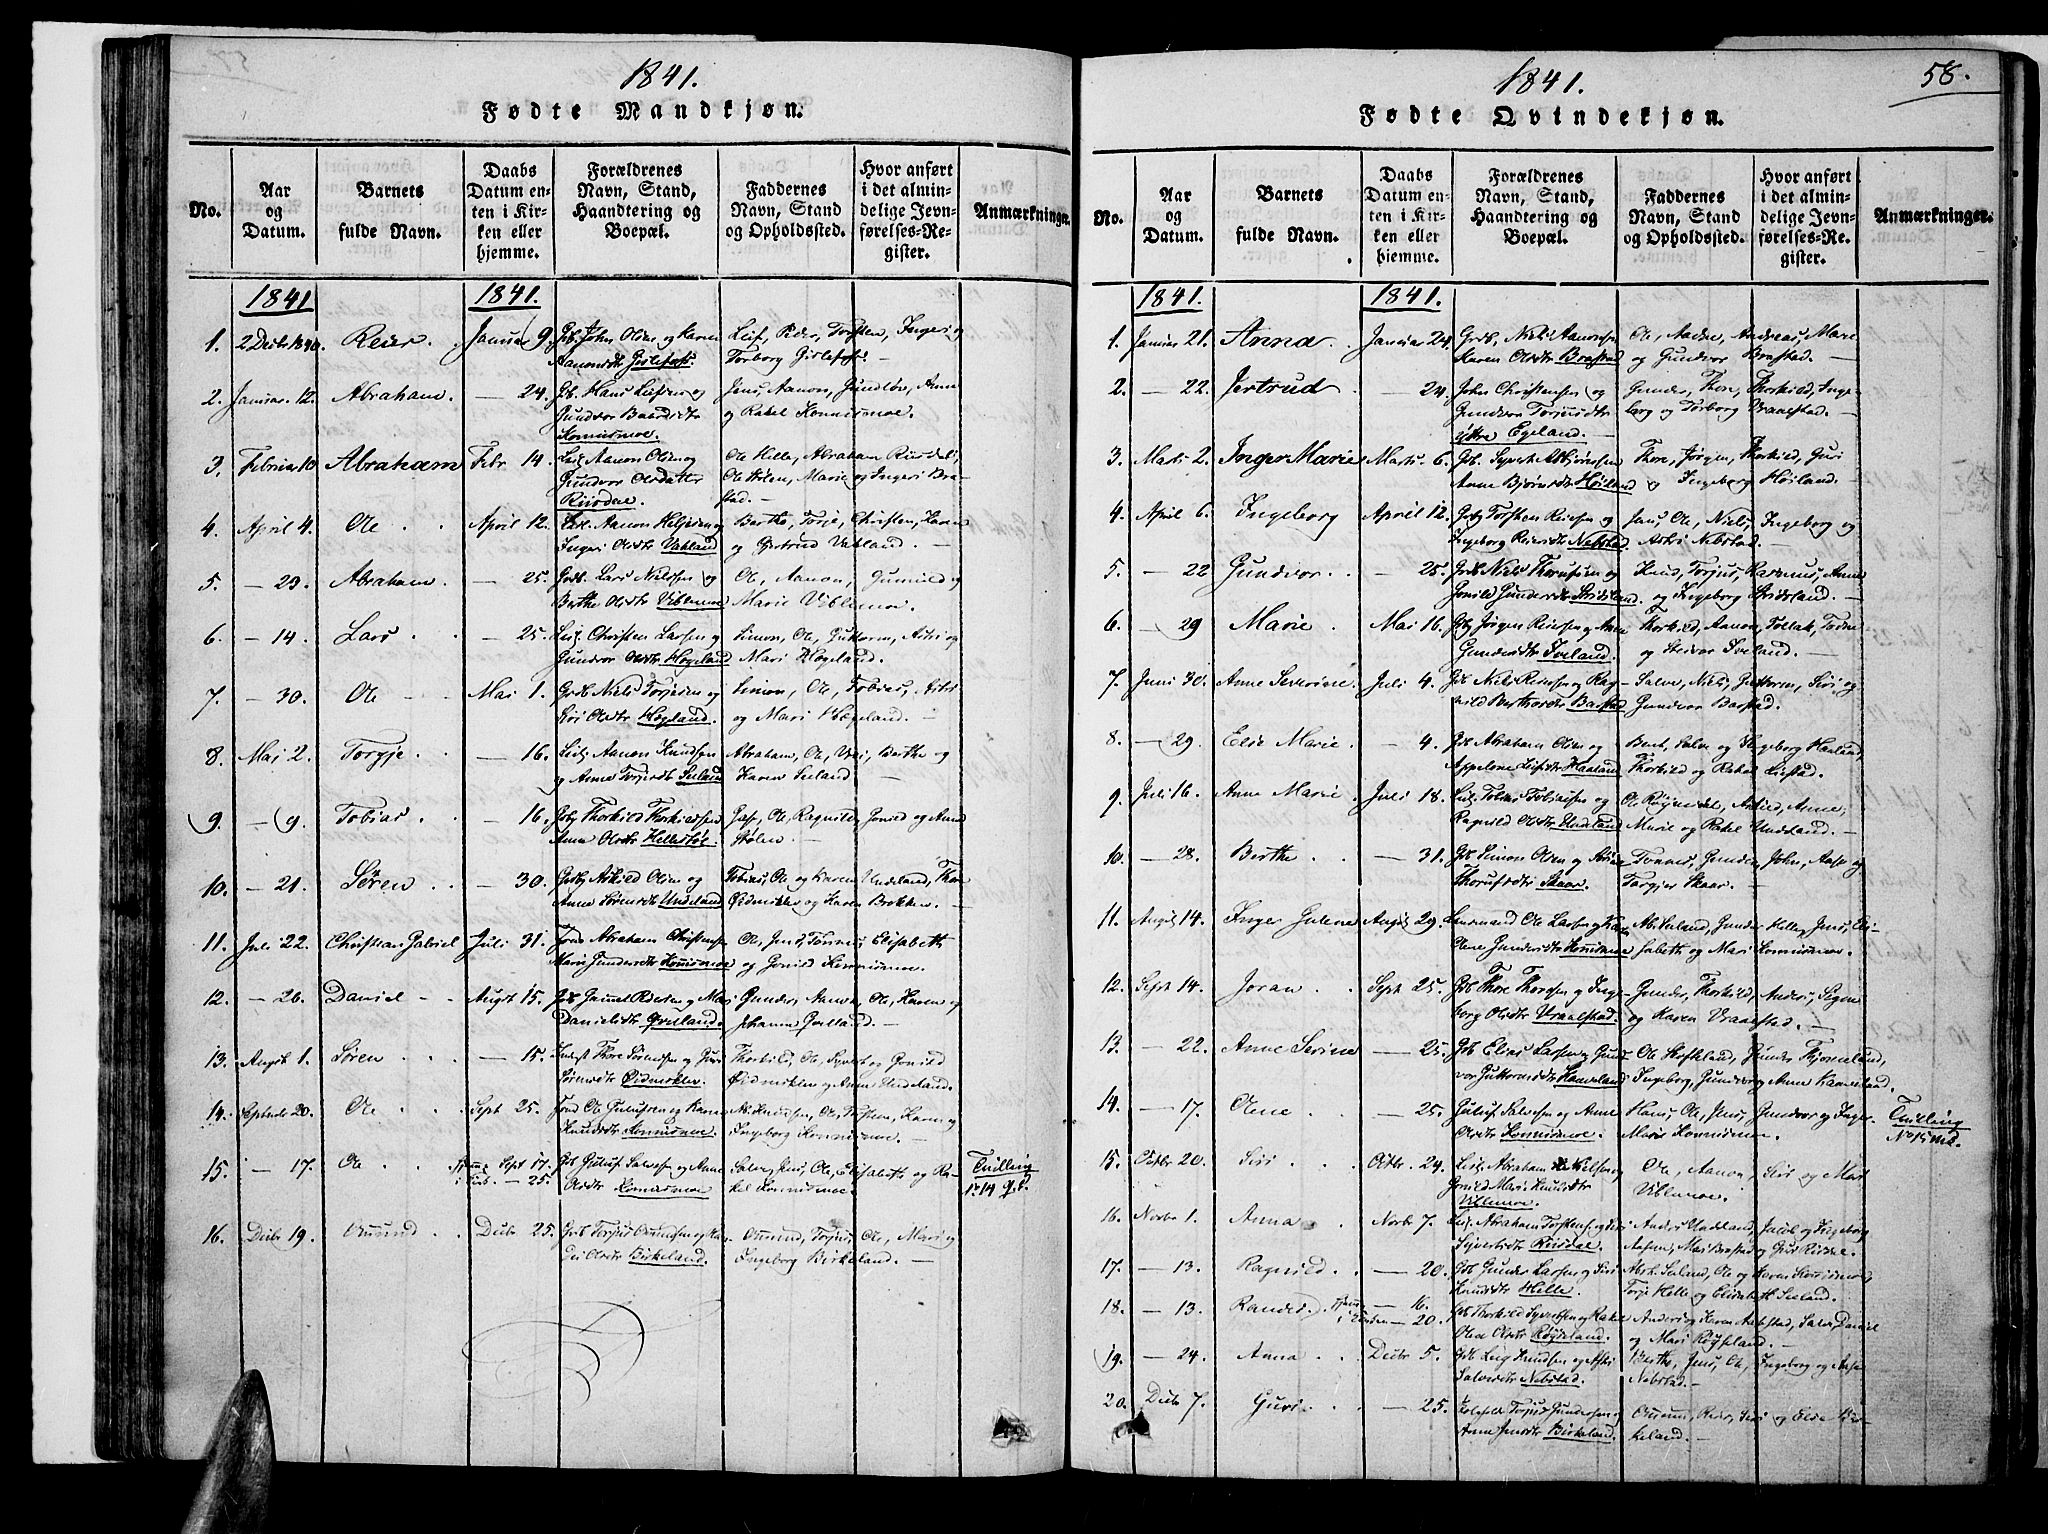 1841.
Fødte Mandkjøn.
No.
Aar og Datum.
Barnets fulde Navn.
Daabs Datum enten i Kirken eller hjemme.
Forældrenes Navn, Stand, Haandtering og Boepæl.
Faddernes Navn, Stand og Opholdssted.
Hvor anført i det almindelige Jevnførelses-Register.
Anmærkninger.
1841
1841.
1. 2 Decbr 1840. Reier. Januar 9. Gb. John Olsen og Karen
Aanensdtr Gislefoss.
Leif, Peder, Torsten, Ingeri og
Torborg Gislefoss.
2. Januar 12. Abraham. — 24. Gb. Hans Leifsen og
Gundvor Baardsdtr
Konnismoe.
Jens, Aanon, Gundlov, Anne
og Rakel Konnismoe. —
3. Februar 10 Abraham Febr 14. Lei. Aanon Olsen og
Gundvor Olsdatter
Risdal.
Ole Helle, Abraham Risdal,
Ole Stølen, Marie og Ingeri Brastad. —
4. April 4. Ole April 12.
Ingeri Olsdtr Vatland
Berthe, Torje, Christen, Karen
og Gjertrud Vatland. —
5. — 29. Abraham — 25. Grdb. Lars Nielsen og
Berthe Olsdtr Viblemoe
Ole, Aanon, Gunnild og
Marie Viblemoe. —
6. — 14. Lars — 25. Lei. Christen Larsen og
Gundvor Olsdtr Høgeland
Simon, Ole, Guttorm, Astri og
Mari Høgeland. —
7. — 30. Ole Mai 1. Grdb. Niels Torjesen og
Siri Olsdtr Høgeland.
Simon, Ole, Tobias, Astri
og Mari Høgeland. —
8. Mai 2. Torgje — 16. Lei. Aanon Knudsen
og Anne Torjesdtr Seeland
Abraham, Ole, Berthe og
Karen Seeland —
9. — 9. Tobias — 16. Gb. Thorkild Thorkildsen
Anne Olsdtr Hellestøl.
Ole, Ragnild, Gonild og Anne
Stølen. —
10. — 21. Søren — 30. Gb. Askild Olsen og
Anne Sørensdtr Undeland
Tobias, Ole og Karen Undeland, Thore
Øidneklev og Karen Brokken. —
11. Juli 22. Christian Gabriel Juli 31. Abraham Christensen
Marie Gundersdtr Konnismoe
Ole, Jens, Tønnes, Elisabeth
og Gonild Konnismoe.
12. — 26. Daniel Augst 15. Gb. Gunnel Reiersen og Mari
Danielsdtr Qveland.
Gunder, Aanon, Ole, Karen og
Johanne Qveland. —
13. Augst 1. Søren — 15. Indst Thore Sørensen og Guri
Sørensdtr Øidneklev.
Thorkild, Ole, Syvert og Gonild
Øidneklev og Anne Undeland.
14. Septbr 20. Ole Sept 25.
Knudsdtr Konnismoe.
Ab. Knudsen, Ole, Torsten, Karen og
Ingeborg Konnismoe. —
15. — 17. Ole hjemme Sept 17.
i Kirk. — 25. Gb. Gjeruf Salvesen og Anne
Olsdtr Konnismoe
Salve, Jens, Ole, Elisabeth og Rakel
Konnismoe.
Tvilling
No 14 Q.k.
16. Decbr 19. Omund Decbr 25. Grdb Torjus Omundsen og
Olsdtr Birkeland.
Omund, Torjus, Ole, Mari og
Ingeborg Birkeland. —
1841.
58.
Fødte Qvindekjøn.
No.
Aar og Datum.
Barnets fulde Navn.
Daabs Datum enten i Kirken eller hjemme.
Forældrenes Navn, Stand, Haandtering og Boepæl.
Faddernes Navn, Stand og Opholdssted.
Hvor anført i det almindelige Jevnførelses-Register.
Anmærkninger.
1841.
1841.
1. Januar 21. Anna Januar 24. Grdb. Niels Aanonsen
Karen Olsdtr Brastad
Ole, Aadne, Andreas, Mari
og Gundvor Brastad. —
2. — 22. Jertrud — 24. John Christensen og
Gundvor Torjusdtr
ytre Egeland. —
Gunder, Thore, Thorkild, Ingeborg
og Torborg Vraalstad. —
3. Marts 2. Inger Marie Marts 6. Gb. Syvert Asbjørnsen
Anne Bjørnsdtr Høiland
Thore, Jørgen, Thorkild, Guri
og Ingeborg Høiland.
4. April 6. Ingeborg April 12. Gb. Torsten Reiersen og
Ingeborg Reiersdtr Nebstad.
Jens, Ole, Niels, Ingeborg og
Astri Nebstad. —
5. — 22 Gundvor — 25. Grdb Niels Thorufsen og
Gonild Gundersdtr Stridsland
Knud, Torjus, Rasmus, Anne
og Ingeborg Stridsland. —
6. — 29 Marie Mai 16. Gb. Jørgen Reiersen og Anne
Gundersdtr Iveland.
Thorkild, Aanon, Tollak, Todne
og Seivor Iveland. —
7. Juni 30. Anne Severine. Juli 4. Gb. Niels Reiersen og Ragnild
Berthorsdtr Barstad
Salve, Niels, Guttorm, Siri og
Gundvor Barstad.
8. — 29. Else Marie — 4. Gb. Abraham Olsen og
Appelone Leifsdtr Haaland
Berit, Salve og Ingeborg Haaland,
Thorkild og Rakel Liestad. —
9. Juli 16. Anne Marie Juli 18. Lei. Tobias Tobiassen og
Ragnild Olsdtr Undeland
Ole Risdal, Askild, Anne,
Marie og Rakel Undeland. —
10. — 28. Berthe — 31. Gb Simon Olsen og
Thorufsdtr Skaar.
Tønnes, Gunder, John, Aase og
Torgjer Skaar. —
11. Augst 14. Inger Gulene Augst 29. Lensmand Ole Larsen og Karen
Olene Gundersdtr Konnismoe
Ab. Seeland, Gunder Helle, Jens, Elisabeth
og Mari Konnismoe. —
12. Sept 14. Joran Sept 25. Gb Thore Thoresen og Ingeborg
Olsdtr Vraalstad.
Gunder, Thorkild, Anders, Signe
og Karen Vraalstad. —
13. — 22. Anne Serine — 25. Gb. Elias Larsen og Gundvor
Guttormsdtr Haaveland
Ole Stofteland, Gunder Fjomeland,
Ingeborg, Gundvor og Anne Haaveland.
14. — 17. Olene — 25. Gjeruf Salvesen og Anne
Olsdtr Konnismoe.
Hans, Ole, Jens, Gundvor og Inger
Marie Konnismoe. —
Tvilling
No 15 Mk.
15. Octbr 20. Siri Octbr 24. Lei. Abraham Nielsen og
Gonild Marie Knudsdtr
Viblemoe.
Ole, Aanon, Siri og Mari
Viblemoe. —
16. Novbr 1. Anna Novbr 7. Lei. Abraham Torstensen og
Syvertsdtr Risdal.
Anders Undeland, Jacob og Ingeborg
Aasen, Mari Brastad og Guri Risdal.
17. — 13. Ragnild — 20. Gb Gunder Larsen og Siri
Knudsdtr Helle.
Abr. Seeland, Ole og Karen Konnismoe,
Torje Helle og Elisabeth Seeland.
18. — 13. Randei. hjemme — 16.
i Kirken — 20. Gb Thorkild Syvertsen og Rakel
Olene Olsdtr Røyseland
Anders og Karen Aabestad, Salve, Daniel
og Mari Røyseland. —
19. — 24. Anna Decbr 5. Gb Leif Knudsen og Astri
Salvesdtr Nebstad.
Berthe, Jens, Ole, Ingeborg og Aase
Nebstad. —
20. Decbr 7. Guri — 25. Torjus Gundersen og
Anne Jensdtr Birkeland.
Omund, Reier, Siri og Birkeland. —